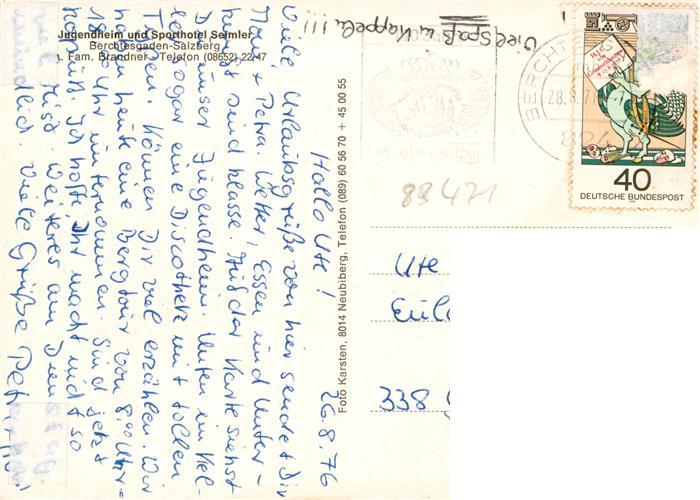 Jugendheim und Sporthotel Seimler
Berchtesgaden-Salzberg
Fam. Brandner, Telefon (08652) 22/47
Viel Spaß u. Kappel.!!!
BERCHT
28.8.7
40
DEUTSCHE BUNDESPOST
83 421
Foto Karsten, 8014 Neubiberg, Telefon (089) 60 56 70 + 45 00 55
26.8.76
Hallo Ute!
Viele Urlaubsgrüße von hier sendet Dir
Petra. Wetter, Essen und Unter-
kunft sind klasse. Auf der Karte siehst
Du unser Jugendheim. Unten im Kel-
ler sogar eine Discothek mit tollen
Können Dir viel erzählen. Wir
haben heute eine Bergtour von 8.00 Uhr-
18 Uhr unternommen. Sind jetzt
kaputt. Ich hoffe, Ihr macht nicht so
viel Mist. Weiteres am
mündlich. Viele Grüße Petra
Ute
338